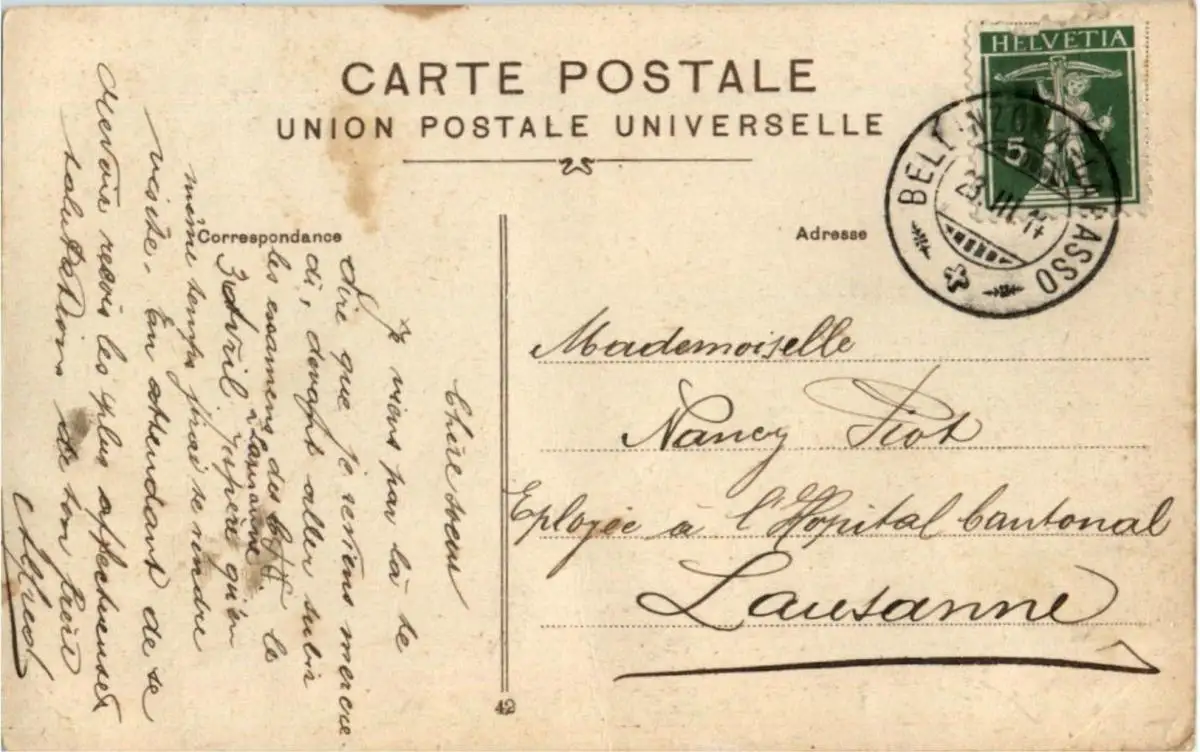 CARTE POSTALE
UNION POSTALE UNIVERSELLE
HELVETIA
5
BELLINZONA
23. III. 11
Correspondance
Adresse
Chère soeur
Je viens par là te
dire que je reviens mercre
di, devant aller subir
les examens des le
3 Avril à Lausanne j'espère qu'en
même temps j'irai te rendre
visite. En attendant de te
devoir reçois les plus affectueuses
salutations de ton frère
Alfred
Mademoiselle
Nancy Piot
Eployée à l'Hopital Cantonal
Lausanne
42